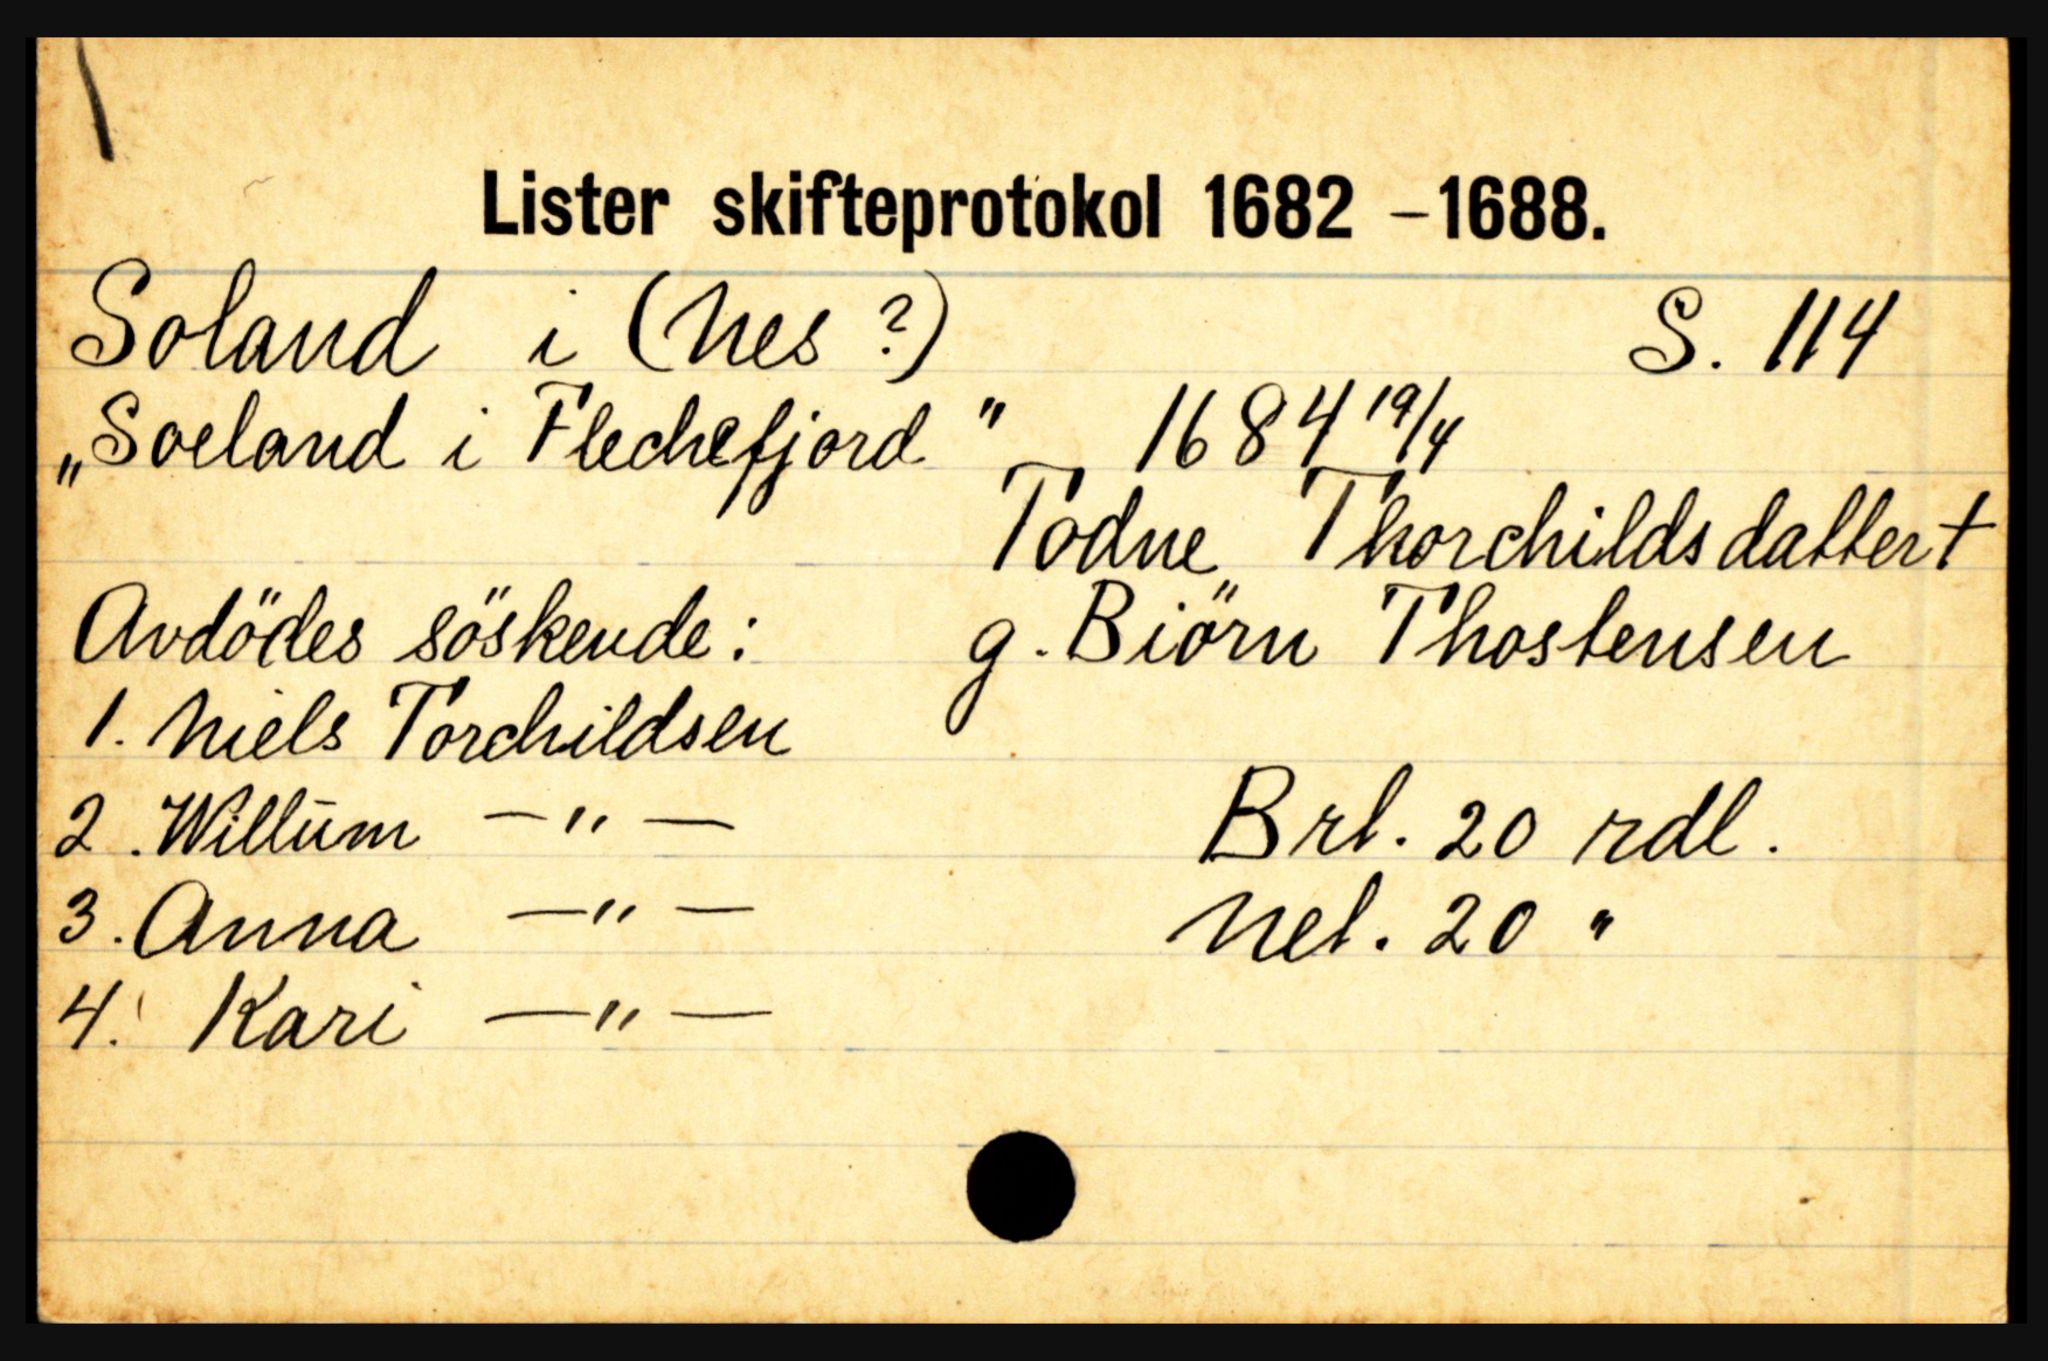 Lister skifteprotokol 1682 - 1688.
Soland i (Nes ?) S. 114
„Soeland i Flechefjord " 1684 19/4
Todne Thorchildsdatter †
Avdödes söskende: g. Biörn Thostensen
1. Niels Torchildsen
2. Willum — " — Brl. 20 rdl.
3. Anna — " — Nel. 20 "
4. Kari — " —